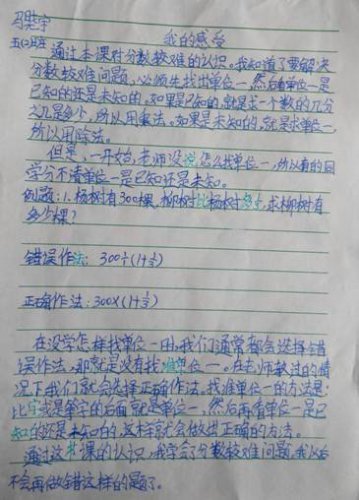 冯楚宇
五(2)班
我的感受
通过本课对分数较难的认识。我知道了要解决
分数较难问题,必须先找出单位一,然后看单位一是
已知的还是未知的,如果是已知的,就是求一个数的几分
之几是多少,所以用乘法。如果是未知的,就是求单位一,
所以用除法。
但是,一开始,老师没说怎么找单位一,所以有的同
学分不清单位一是已知还是未知。
例题:1.杨树有300棵,柳树比杨树多,求柳树有
多少棵?
错误作法: 300÷(1+)
正确作法: 300×(1+)
在没学怎样找单位一时,我们通常都会选择错
误作法,那就是没有找准单位一。在老师教过的情
况下我们就会选择正确作法。找准单位一的方法是:
比字或是等字的右面就是单位一,然后再看单位一是已
知的还是未知的,这样就会做出正确的方法。
通过这节课的认识,我学会了分数较难问题,我以后
不会再做错这样的题了。